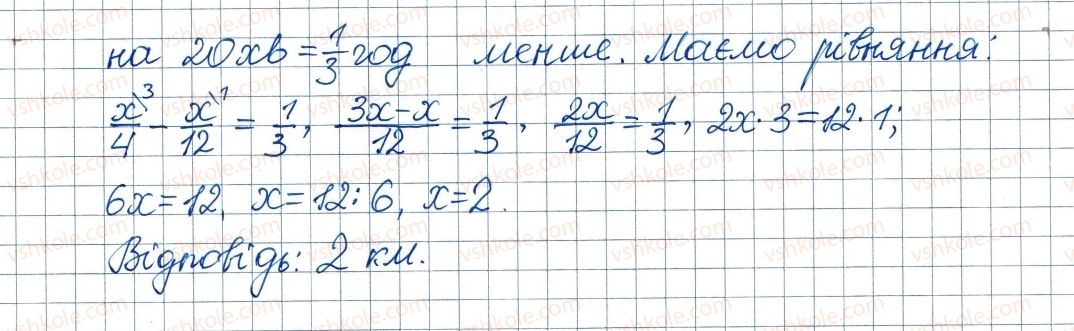 на 20хв = 1/3 год менше. Маємо рівняння:
x\3/4 - x\1/12 = 1/3, 3x-x/12 = 1/3, 2x/12 = 1/3, 2x·3=12·1;
6x=12, x=12:6, x=2.
Відповідь: 2 км.